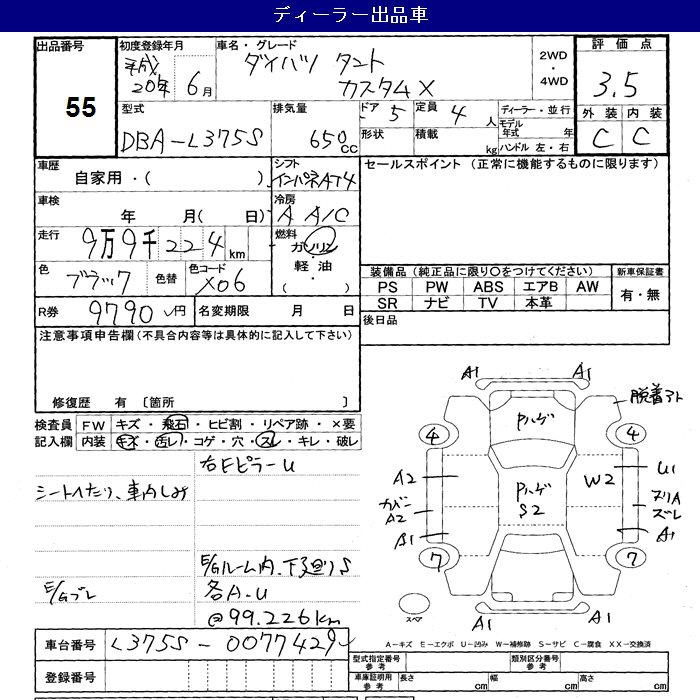 ディーラー出品車
出品番号
55
初度登録年月
平成
20年 6月
車名・グレード
ダイハツ タント
カスタムX
2WD
・
4WD
評価点
3.5
外装 内装
C C
型式
DBA-L375S
排気量
650cc
ドア 5
定員 4人
形状
積載 kg
ディーラー・並行
モデル年式 年
ハンドル 左・右
車歴
自家用・( )
シフト
インパネAT4
セールスポイント (正常に機能するものに限ります)
車検
年 月( 日)
冷房
A A/C
走行
9万9千224km
燃料
ガソリン
軽油
( )
色
ブラック
色替
色コード
X06
装備品 (純正品に限り○をつけてください)
PS PW ABS エアB AW
SR ナビ TV 本革
新車保証書
有・無
R券 9790円
名変期限 月 日
後日品
注意事項申告欄(不具合内容等は具体的に記入して下さい)
修復歴 有 〔箇所 〕
検査員記入欄
FW キズ・飛石・ヒビ割・リペア跡・×要
内装 キズ・汚レ・コゲ・穴・スレ・キレ・破レ
右EピラーU
シートヘたり、車内しみ
E/Gルーム内、下廻りS
E/Gブレ
各A.U
@99.226km
A1 A1
脱着アト
Pハゲ
4 4
A2
W2
U1
Pハゲ
S2
カバー
A2
ヌリA
ズレ
A1
A1
7 7
スペア
A1 A1
A-キズ E-エクボ U-凹み W-補修跡 S-サビ C-腐食 XX-交換済
車台番号 L375S-0077429
登録番号
型式指定番号
参考
類別区分番号
参考
車庫証明用
参考
長さ cm
幅 cm
高さ cm